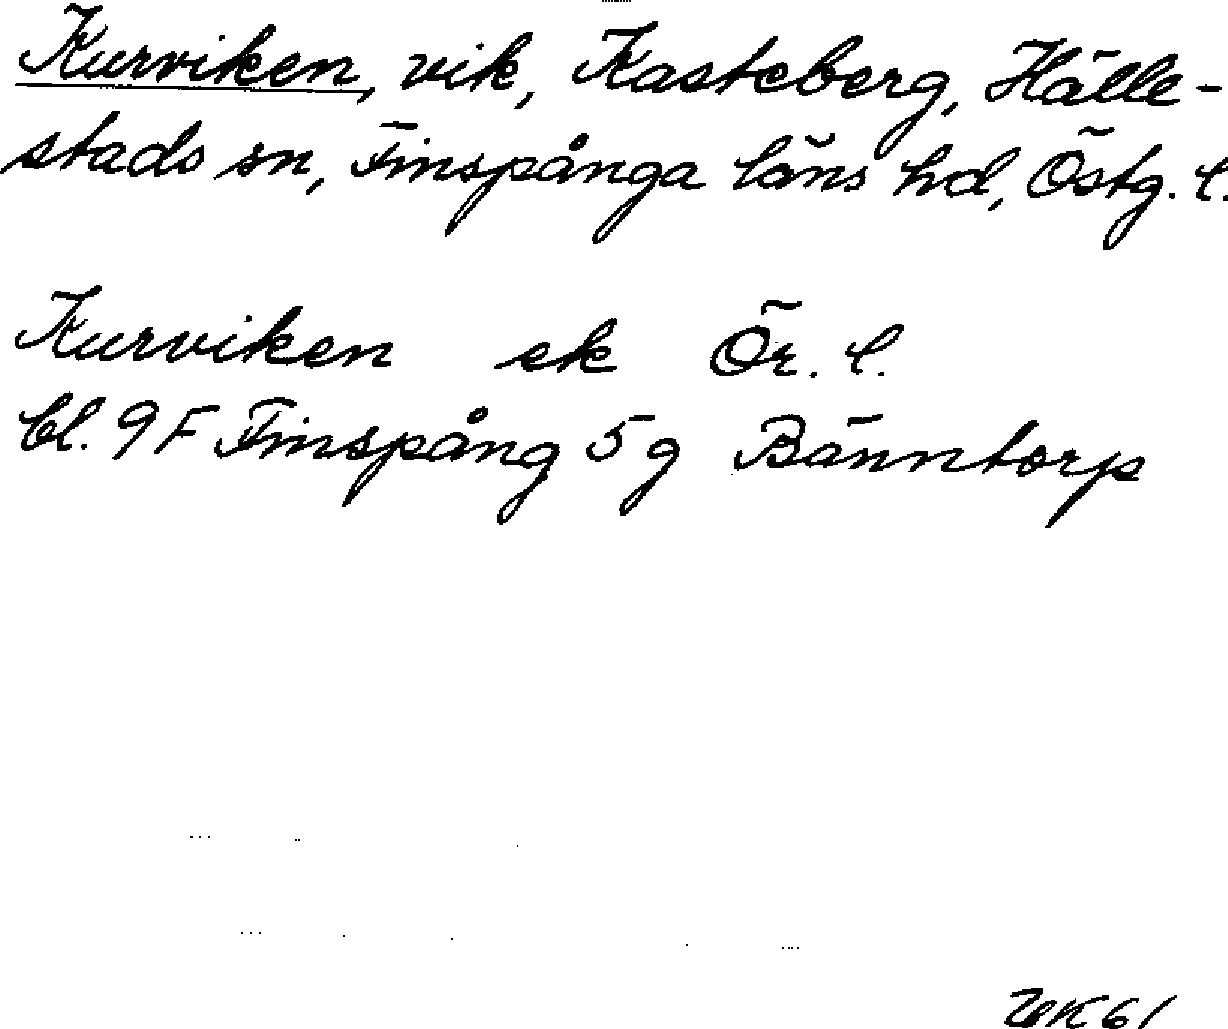 Kurviken, vik, Kasteberg, Hälle-
stads sn, Finspånga läns hd, Östg. l.
Kurviken ek Ör. l.
bl. 9F Finspång 5g Bänntorp
61